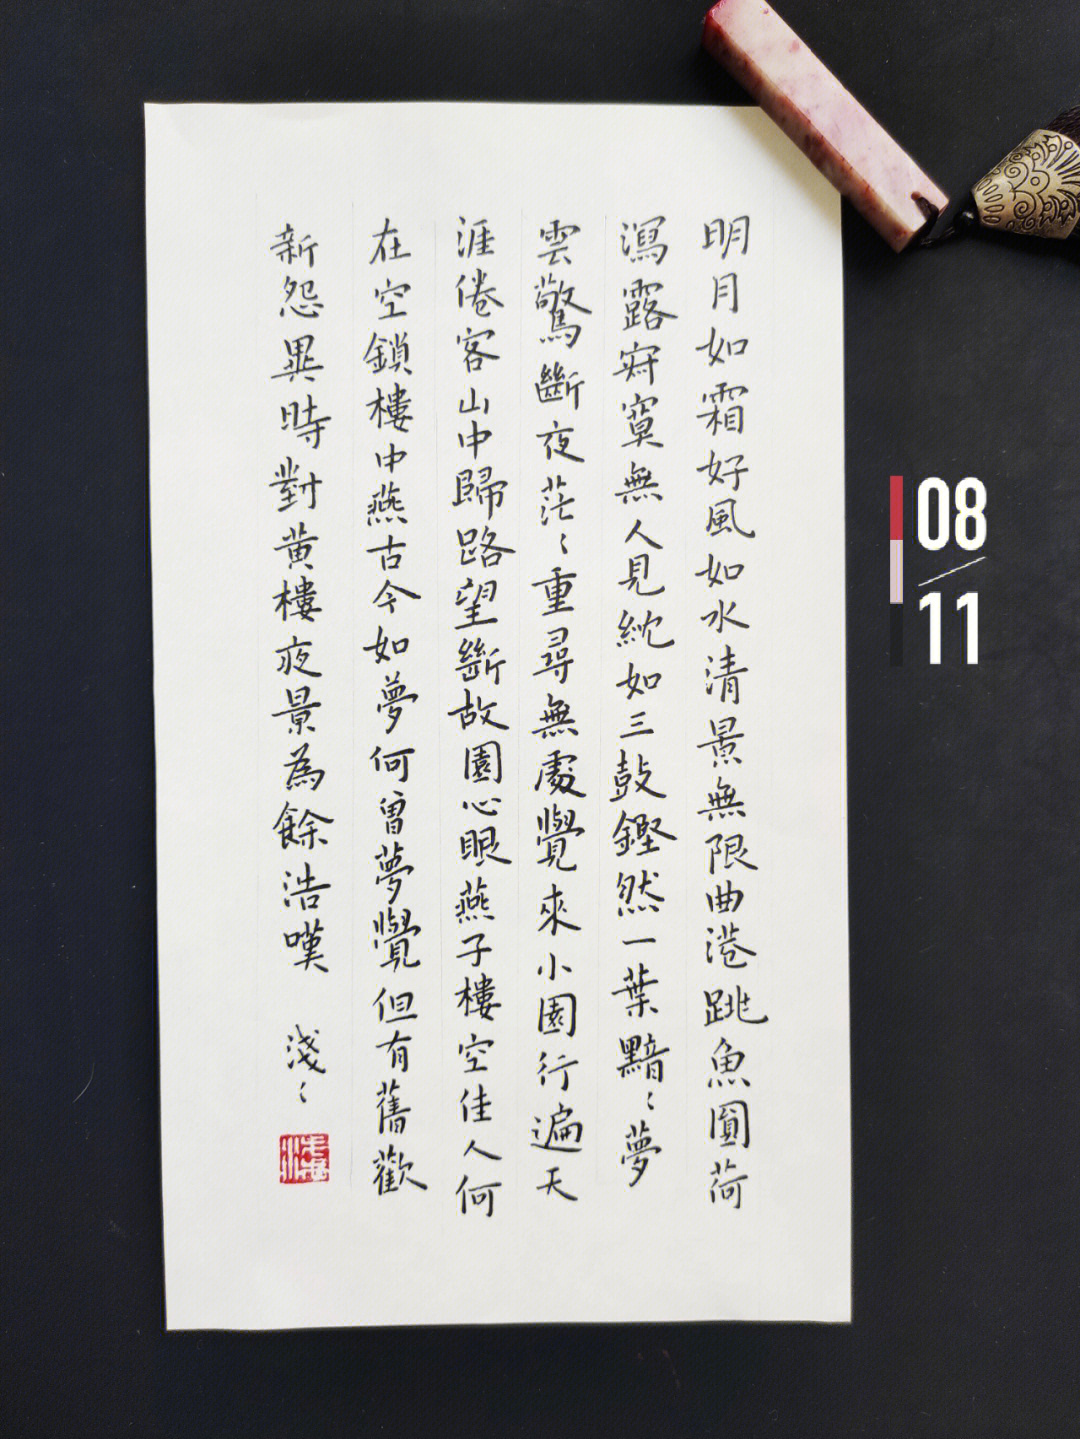 明月如霜好風如水清景無限曲港跳魚圓荷
瀉露寂寞無人見紞如三鼓鏗然一葉黯〻夢
雲驚斷夜茫〻重尋無處覺來小園行遍天
涯倦客山中歸路望斷故園心眼燕子樓空佳人何
在空鎖樓中燕古今如夢何曾夢覺但有舊歡
新怨異時對黃樓夜景為餘浩嘆 淺〻
08
11